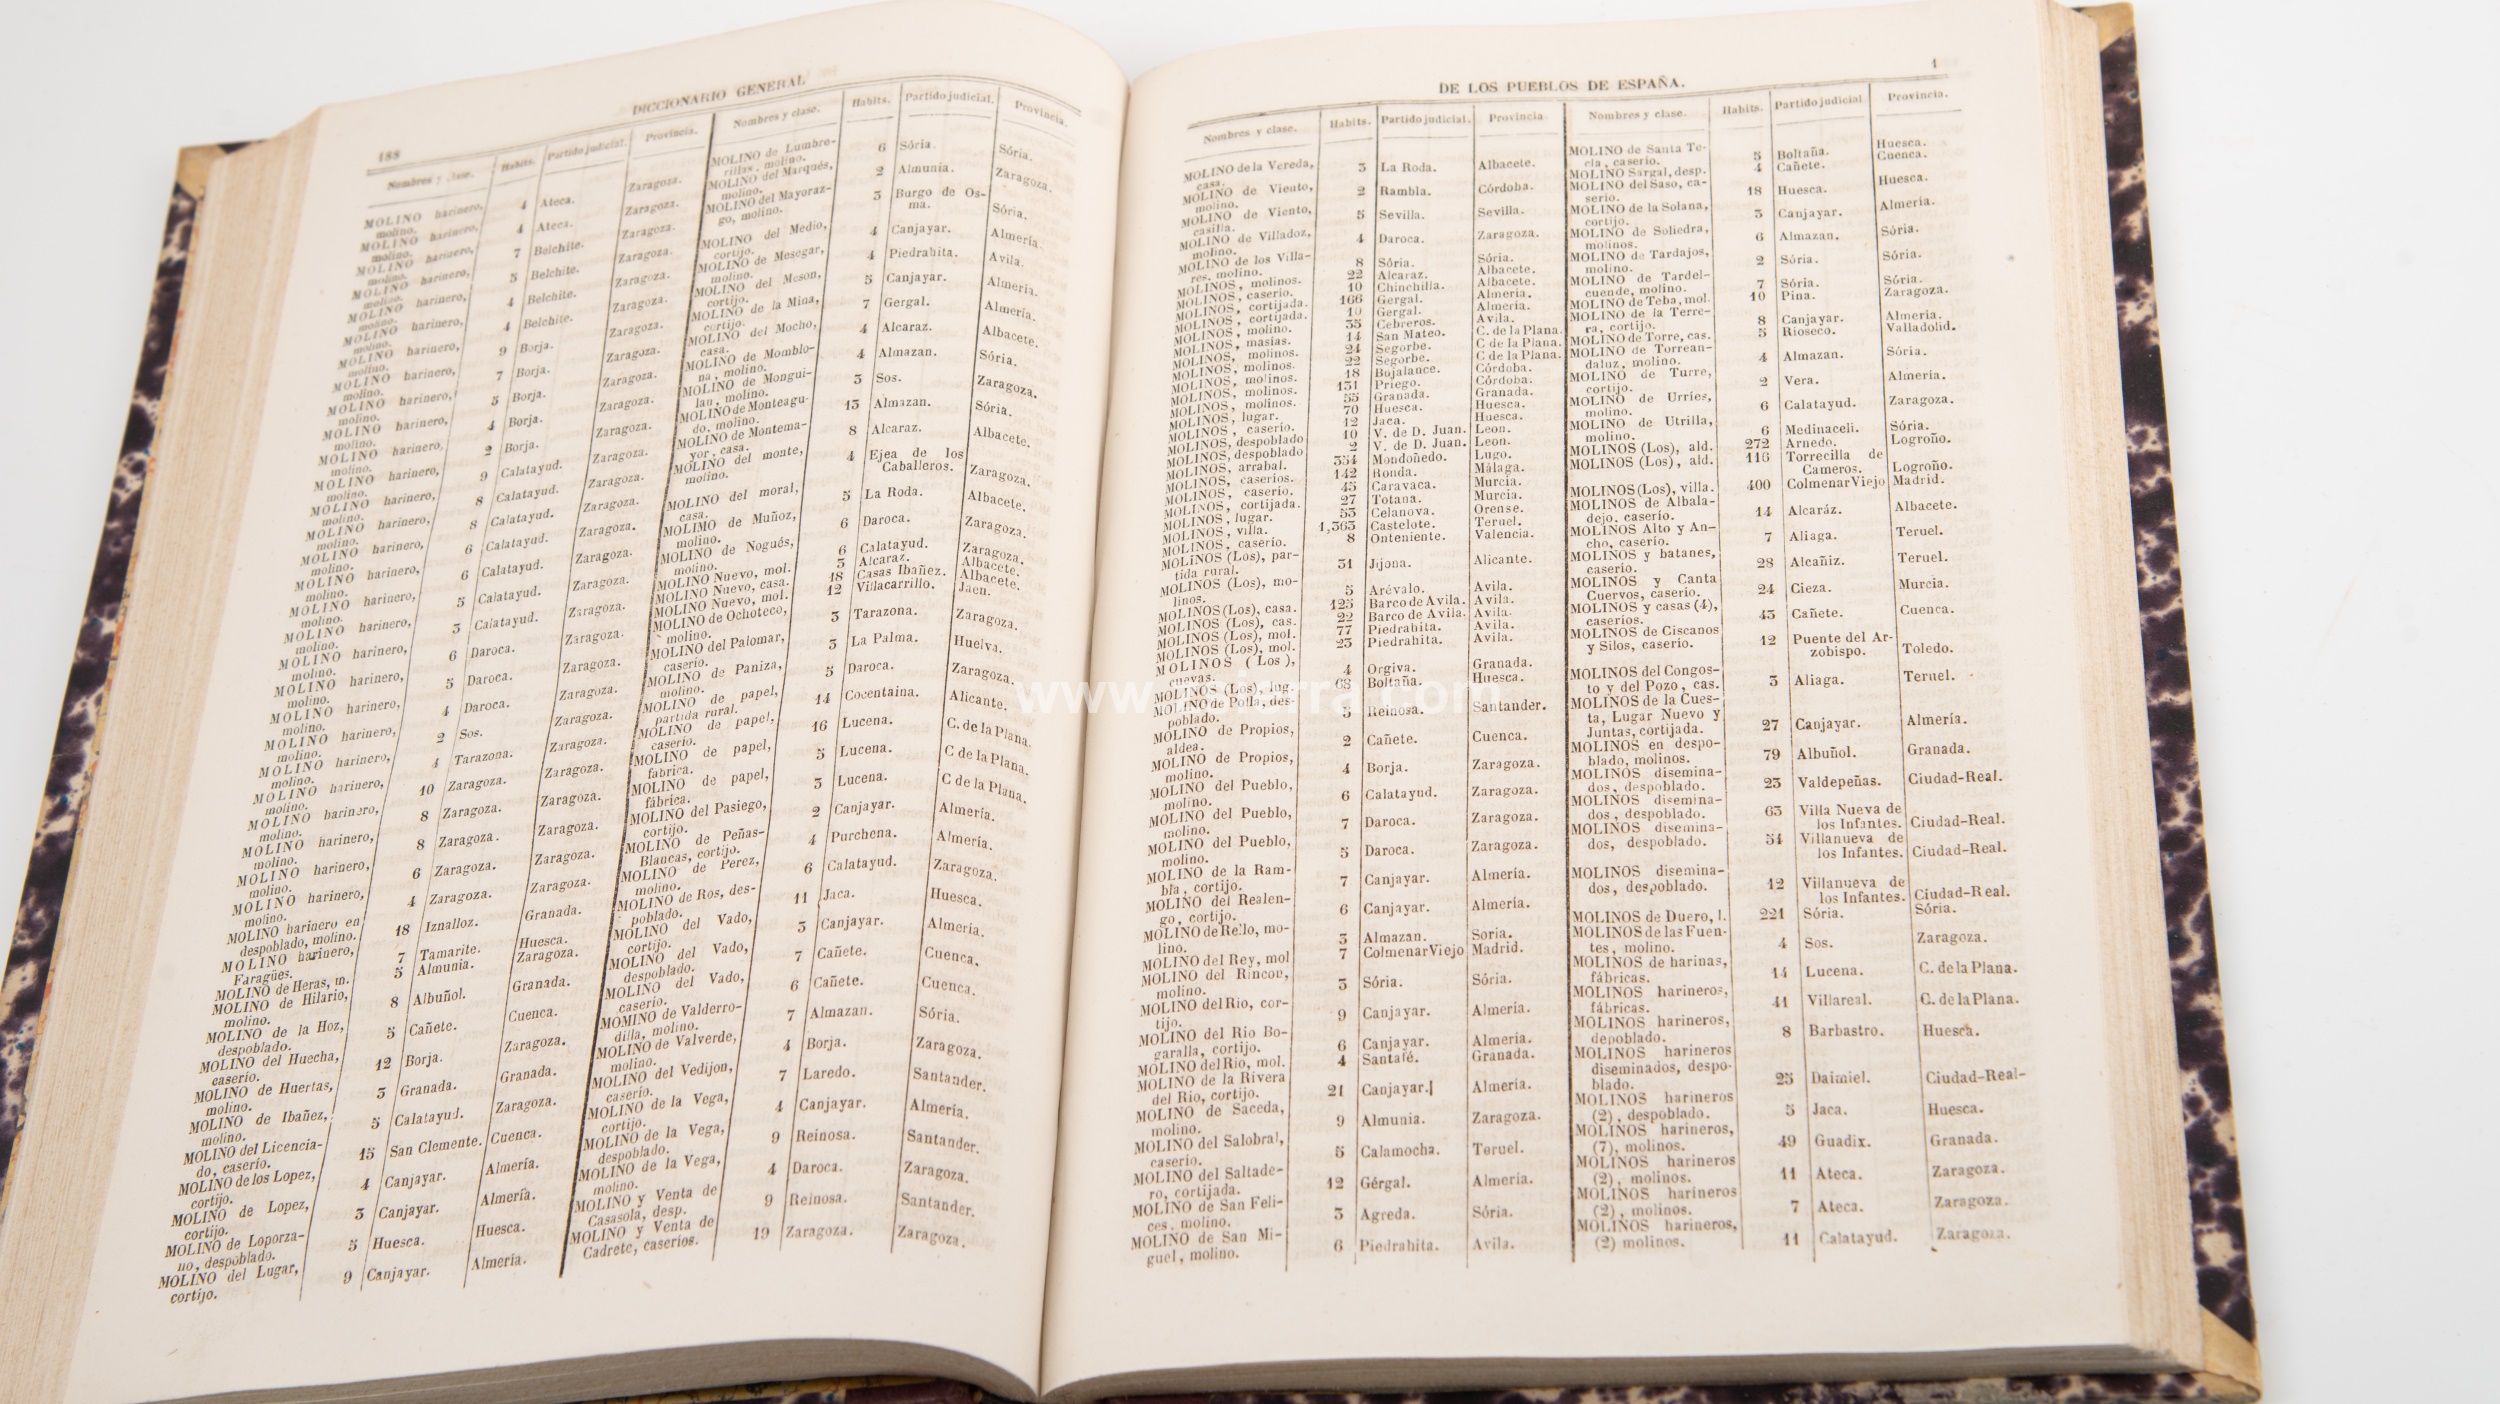 188
DICCIONARIO GENERAL
Nombres y clase. Habits. Partido judicial. Provincia.
MOLINO harinero, molino. 4 Ateca. Zaragoza.
MOLINO harinero, molino. 4 Ateca. Zaragoza.
MOLINO harinero, molino. 7 Belchite. Zaragoza.
MOLINO harinero, molino. 5 Belchite. Zaragoza.
MOLINO harinero, molino. 4 Belchite. Zaragoza.
MOLINO harinero, molino. 4 Belchite. Zaragoza.
MOLINO harinero, molino. 9 Borja. Zaragoza.
MOLINO harinero, molino. 7 Borja. Zaragoza.
MOLINO harinero, molino. 5 Borja. Zaragoza.
MOLINO harinero, molino. 4 Borja. Zaragoza.
MOLINO harinero, molino. 2 Borja. Zaragoza.
MOLINO harinero, molino. 9 Calatayud. Zaragoza.
MOLINO harinero, molino. 8 Calatayud. Zaragoza.
MOLINO harinero, molino. 8 Calatayud. Zaragoza.
MOLINO harinero, molino. 6 Calatayud. Zaragoza.
MOLINO harinero, molino. 6 Calatayud. Zaragoza.
MOLINO harinero, molino. 5 Calatayud. Zaragoza.
MOLINO harinero, molino. 3 Calatayud. Zaragoza.
MOLINO harinero, molino. 6 Daroca. Zaragoza.
MOLINO harinero, molino. 5 Daroca. Zaragoza.
MOLINO harinero, molino. 4 Daroca. Zaragoza.
MOLINO harinero, molino. 2 Sos. Zaragoza.
MOLINO harinero, molino. 4 Tarazona. Zaragoza.
MOLINO harinero, molino. 10 Zaragoza. Zaragoza.
MOLINO harinero, molino. 8 Zaragoza. Zaragoza.
MOLINO harinero, molino. 8 Zaragoza. Zaragoza.
MOLINO harinero, molino. 6 Zaragoza. Zaragoza.
MOLINO harinero, molino. 4 Zaragoza. Zaragoza.
MOLINO harinero en
despoblado, molino. 18 Iznalloz. Granada.
MOLINO harinero,
Faragües. 7 Tamarite. Huesca.
MOLINO de Heras, m. 5 Almunia. Zaragoza.
MOLINO de Hilario,
molino. 8 Albuñol. Granada.
MOLINO de la Hoz,
despoblado. 5 Cañete. Cuenca.
MOLINO del Huecha,
caserío. 12 Borja. Zaragoza.
MOLINO de Huertas,
molino. 3 Granada. Granada.
MOLINO de Ibañez,
molino. 5 Calatayud. Zaragoza.
MOLINO del Licencia-
do, caserío. 15 San Clemente. Cuenca.
MOLINO de los Lopez,
cortijo. 4 Canjayar. Almería.
MOLINO de Lopez,
cortijo. 3 Canjayar. Almería.
MOLINO de Loporza-
no, despoblado. 5 Huesca. Huesca.
MOLINO del Lugar,
cortijo. 9 Canjayar. Almería.
Nombres y clase. Habits. Partido judicial. Provincia.
MOLINO de Lumbre-
rillas, molino. 6 Sória. Sória.
MOLINO del Marqués,
molino. 2 Almunia. Zaragoza.
MOLINO del Mayoraz-
go, molino. 3 Burgo de Os-
ma. Sória.
MOLINO del Medio,
cortijo. 4 Canjayar. Almería.
MOLINO de Mesegar,
molino. 4 Piedrahita. Avila.
MOLINO del Meson,
cortijo. 5 Canjayar. Almería.
MOLINO de la Mina,
cortijo. 7 Gergal. Almería.
MOLINO del Mocho,
casa. 4 Alcaraz. Albacete.
MOLINO de Momblo-
na, molino. 4 Almazan. Sória.
MOLINO de Mongui-
lan, molino. 3 Sos. Zaragoza.
MOLINO de Monteagu-
do, molino. 13 Almazan. Sória.
MOLINO de Montema-
yor, casa. 8 Alcaraz. Albacete.
MOLINO del monte,
molino. 4 Ejea de los
Caballeros. Zaragoza.
MOLINO del moral,
casa. 5 La Roda. Albacete.
MOLIMO de Muñoz,
molino. 6 Daroca. Zaragoza.
MOLINO de Nogués,
molino. 6 Calatayud. Zaragoza.
MOLINO Nuevo, mol. 3 Alcaraz. Albacete.
MOLINO Nuevo, casa. 18 Casas Ibañez. Albacete.
MOLINO Nuevo, mol. 12 Villacarrillo. Jaen.
MOLINO de Ochoteco,
molino. 3 Tarazona. Zaragoza.
MOLINO del Palomar,
caserío. 3 La Palma. Huelva.
MOLINO de Paniza,
molino. 5 Daroca. Zaragoza.
MOLINO de papel,
partida rural. 14 Cocentaina. Alicante.
MOLINO de papel,
caserío. 16 Lucena. C. de la Plana.
MOLINO de papel,
fábrica. 5 Lucena. C de la Plana.
MOLINO de papel,
fábrica. 3 Lucena. C de la Plana.
MOLINO del Pasiego,
cortijo. 2 Canjayar. Almería.
MOLINO de Peñas-
Blancas, cortijo. 4 Purchena. Almería.
MOLINO de Perez,
molino. 6 Calatayud. Zaragoza.
MOLINO de Ros, des-
poblado. 11 Jaca. Huesca.
MOLINO del Vado,
cortijo. 3 Canjayar. Almería.
MOLINO del Vado,
despoblado. 7 Cañete. Cuenca.
MOLINO del Vado,
caserío. 6 Cañete. Cuenca.
MOMINO de Valderro-
dilla, molino. 7 Almazan. Sória.
MOLINO de Valverde,
molino. 4 Borja. Zaragoza.
MOLINO del Vedijon,
caserío. 7 Laredo. Santander.
MOLINO de la Vega,
cortijo. 4 Canjayar. Almería.
MOLINO de la Vega,
despoblado. 9 Reinosa. Santander.
MOLINO de la Vega,
molino. 4 Daroca. Zaragoza.
MOLINO y Venta de
Casasola, desp. 9 Reinosa. Santander.
MOLINO y Venta de
Cadrete, caserios. 19 Zaragoza. Zaragoza.
DE LOS PUEBLOS DE ESPAÑA.
1
Nombres y clase. Habits. Partido judicial. Provincia
MOLINO de la Vereda,
casa. 3 La Roda. Albacete.
MOLINO de Viento,
molino. 2 Rambla. Córdoba.
MOLINO de Viento,
casilla. 5 Sevilla. Sevilla.
MOLINO de Villadoz,
molino. 4 Daroca. Zaragoza.
MOLINO de los Villa-
res, molino. 8 Sória. Sória.
MOLINOS, molinos. 22 Alcaraz. Albacete.
MOLINOS, caserío. 10 Chinchilla. Albacete.
MOLINOS, cortijada. 166 Gergal. Almería.
MOLINOS, cortijada. 10 Gergal. Almería.
MOLINOS, molino. 35 Cebreros. Avila.
MOLINOS, masías. 14 San Mateo. C. de la Plana.
MOLINOS, molinos. 24 Segorbe. C de la Plana.
MOLINOS, molinos. 22 Segorbe. C de la Plana.
MOLINOS, molinos. 18 Bujalance. Córdoba.
MOLINOS, molinos. 131 Priego. Córdoba.
MOLINOS, molinos. 55 Granada. Granada.
MOLINOS, lugar. 70 Huesca. Huesca.
MOLINOS, caserío. 12 Jaca. Huesca.
MOLINOS, despoblado 10 V. de D. Juan. Leon.
MOLINOS, despoblado 2 V. de D. Juan. Leon.
MOLINOS, arrabal. 354 Mondoñedo. Lugo.
MOLINOS, caserios. 142 Ronda. Málaga.
MOLINOS, caserío. 45 Caravaca. Murcia.
MOLINOS, cortijada. 27 Totana. Murcia.
MOLINOS, lugar. 53 Celanova. Orense.
MOLINOS, villa. 1,363 Castelote. Teruel.
MOLINOS, caserío. 8 Onteniente. Valencia.
MOLINOS (Los), par-
tida rural. 31 Jijona. Alicante.
MOLINOS (Los), mo-
linos. 5 Arévalo. Avila.
MOLINOS (Los), casa. 125 Barco de Avila. Avila.
MOLINOS (Los), cas. 22 Barco de Avila. Avila.
MOLINOS (Los), mol. 77 Piedrahita. Avila.
MOLINOS (Los), mol. 23 Piedrahita. Avila.
MOLINOS (Los),
cuevas. 4 Orgiva. Granada.
MOLINOS (Los), lug. 68 Boltaña. Huesca.
MOLINO de Polla, des-
poblado. 3 Reinosa. Santander.
MOLINO de Propios,
aldea. 2 Cañete. Cuenca.
MOLINO de Propios,
molino. 4 Borja. Zaragoza.
MOLINO del Pueblo,
molino. 6 Calatayud. Zaragoza.
MOLINO del Pueblo,
molino. 7 Daroca. Zaragoza.
MOLINO del Pueblo,
molino. 5 Daroca. Zaragoza.
MOLINO de la Ram-
bla, cortijo. 7 Canjayar. Almería.
MOLINO del Realen-
go, cortijo. 6 Canjayar. Almería.
MOLINO de Rello, mo-
lino. 3 Almazan. Soria.
MOLINO del Rey, mol 7 Colmenar Viejo Madrid.
MOLINO del Rincon,
molino. 3 Sória. Sória.
MOLINO del Rio, cor-
tijo. 9 Canjayar. Almería.
MOLINO del Rio Bo-
garalla, cortijo. 6 Canjayar. Almería.
MOLINO del Rio, mol. 4 Santafé. Granada.
MOLINO de la Rivera
del Rio, cortijo. 21 Canjayar. Almería.
MOLINO de Saceda,
molino. 9 Almunia. Zaragoza.
MOLINO del Salobral,
caserío. 5 Calamocha. Teruel.
MOLINO del Saltade-
ro, cortijada. 12 Gérgal. Almería.
MOLINO de San Feli-
ces, molino. 3 Agreda. Sória.
MOLINO de San Mi-
guel, molino. 6 Piedrahita. Avila.
Nombres y clase. Habits. Partido judicial Provincia.
MOLINO de Santa Te-
cla, caserío. 5 Boltaña. Huesca.
MOLINO Sargal, desp. 4 Cañete. Cuenca.
MOLINO del Saso, ca-
serío. 18 Huesca. Huesca.
MOLINO de la Solana,
cortijo. 3 Canjayar. Almería.
MOLINO de Soliedra,
molinos. 6 Almazan. Sória.
MOLINO de Tardajos,
molino. 2 Sória. Sória.
MOLINO de Tardel-
cuende, molino. 7 Sória. Sória.
MOLINO de Teba, mol. 10 Pina. Zaragoza.
MOLINO de la Terre-
ra, cortijo. 8 Canjayar. Almería.
MOLINO de Torre, cas. 5 Rioseco. Valladolid.
MOLINO de Torrean-
daluz, molino. 4 Almazan. Sória.
MOLINO de Turre,
cortijo. 2 Vera. Almería.
MOLINO de Urríes,
molino. 6 Calatayud. Zaragoza.
MOLINO de Utrilla,
molino. 6 Medinaceli. Sória.
MOLINOS (Los), ald. 272 Arnedo. Logroño.
MOLINOS (Los), ald. 116 Torrecilla de
Cameros. Logroño.
MOLINOS (Los), villa. 400 Colmenar Viejo Madrid.
MOLINOS de Albala-
dejo, caserío. 14 Alcaráz. Albacete.
MOLINOS Alto y An-
cho, caserío. 7 Aliaga. Teruel.
MOLINOS y batanes,
caserío. 28 Alcañiz. Teruel.
MOLINOS y Canta
Cuervos, caserío. 24 Cieza. Murcia.
MOLINOS y casas (4),
caserios. 43 Cañete. Cuenca.
MOLINOS de Ciscanos
y Silos, caserío. 12 Puente del Ar-
zobispo. Toledo.
MOLINOS del Congos-
to y del Pozo, cas. 3 Aliaga. Teruel.
MOLINOS de la Cues-
ta, Lugar Nuevo y
Juntas, cortijada. 27 Canjayar. Almería.
MOLINOS en despo-
blado, molinos. 79 Albuñol. Granada.
MOLINOS disemina-
dos, despoblado. 23 Valdepeñas. Ciudad-Real.
MOLINOS disemina-
dos, despoblado. 63 Villa Nueva de
los Infantes. Ciudad-Real.
MOLINOS disemina-
dos, despoblado. 54 Villanueva de
los Infantes. Ciudad-Real.
MOLINOS disemina-
dos, despoblado. 12 Villanueva de
los Infantes. Ciudad-Real.
MOLINOS de Duero, l. 221 Sória. Sória.
MOLINOS de las Fuen-
tes, molino. 4 Sos. Zaragoza.
MOLINOS de harinas,
fábricas. 14 Lucena. C. de la Plana.
MOLINOS harineros,
fábricas. 41 Villareal. C. de la Plana.
MOLINOS harineros,
depoblado. 8 Barbastro. Huesca.
MOLINOS harineros
diseminados, despo-
blado. 25 Daimiel. Ciudad-Real-
MOLINOS harineros
(2), despoblado. 5 Jaca. Huesca.
MOLINOS harineros,
(7), molinos. 49 Guadix. Granada.
MOLINOS harineros
(2), molinos. 11 Ateca. Zaragoza.
MOLINOS harineros
(2), molinos. 7 Ateca. Zaragoza.
MOLINOS harineros,
(2) molinos. 11 Calatayud. Zaragoza.